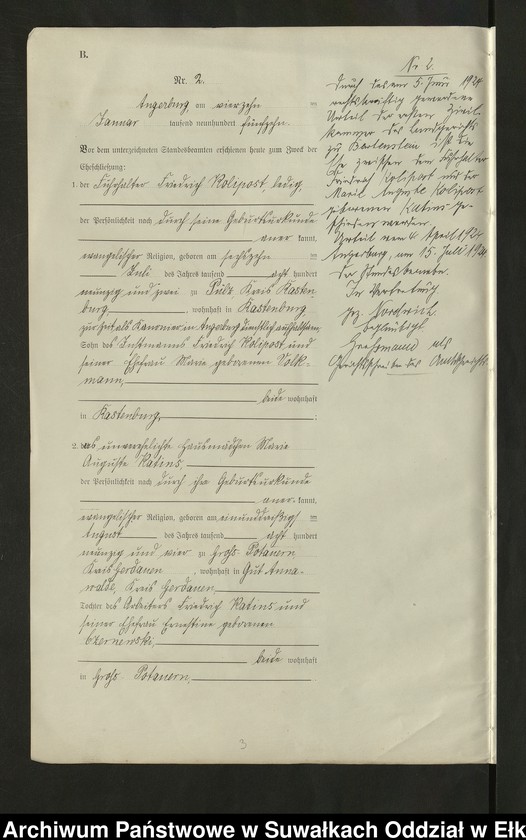 B.
Nr. 2.
Angerburg am vierzehn ten
Januar tausend neunhundert fünfzehn.
Vor dem unterzeichneten Standesbeamten erschienen heute zum Zweck der
Eheschließung:
1. der Friedrich Kolipost, ledig,
der Persönlichkeit nach durch seine Geburtsurkunde
aner kannt,
evangelischer Religion, geboren am sechszehn ten
Juli des Jahres tausend acht hundert
neunzig und zwei zu Kreis Rasten-
burg, wohnhaft in Rastenburg,
zur Zeit als Kanonier in Angerburg dienstlich aufhaltsam,
Sohn des Instmanns Friedrich Kolipost und
seiner Ehefrau Marie geborenen Volk-
mann,
beide wohnhaft
in Rastenburg, :
2. das unverehelichte Hausmädchen Marie
Auguste Katins,
der Persönlichkeit nach durch ihre Geburtsurkunde
aner kannt,
evangelischer Religion, geboren am einunddreißigs ten
August des Jahres tausend acht hundert
neunzig und vier zu Groß Potauern
Kreis Gerdauen, wohnhaft in Gut Anna-
walde, Kreis Gerdauen,
Tochter des Arbeiters Friedrich Katins und
seiner Ehefrau Ernestine geborenen
Czernewski,
beide wohnhaft
in Groß Potauern,
3
Nr 2.
Durch das am 5. Juni 1924
rechtskräftig gewordene
Urteil der ersten Zivil-
kammer des Landgerichts
zu Bartenstein ist die
Ehe zwischen dem
Friedrich Kolipost und der
Marie Auguste Kolipost
geborenen Katins ge-
schieden worden.
Urteil vom 4 April 1924
Angerburg, am 15. Juli 1924
Der Standesbeamte.
In Vertretung
gez.
beglaubigt
als
Gerichtsschreiber des Amtsgerichts.
Archiwum Państwowe w Suwałkach Oddział w Ełku